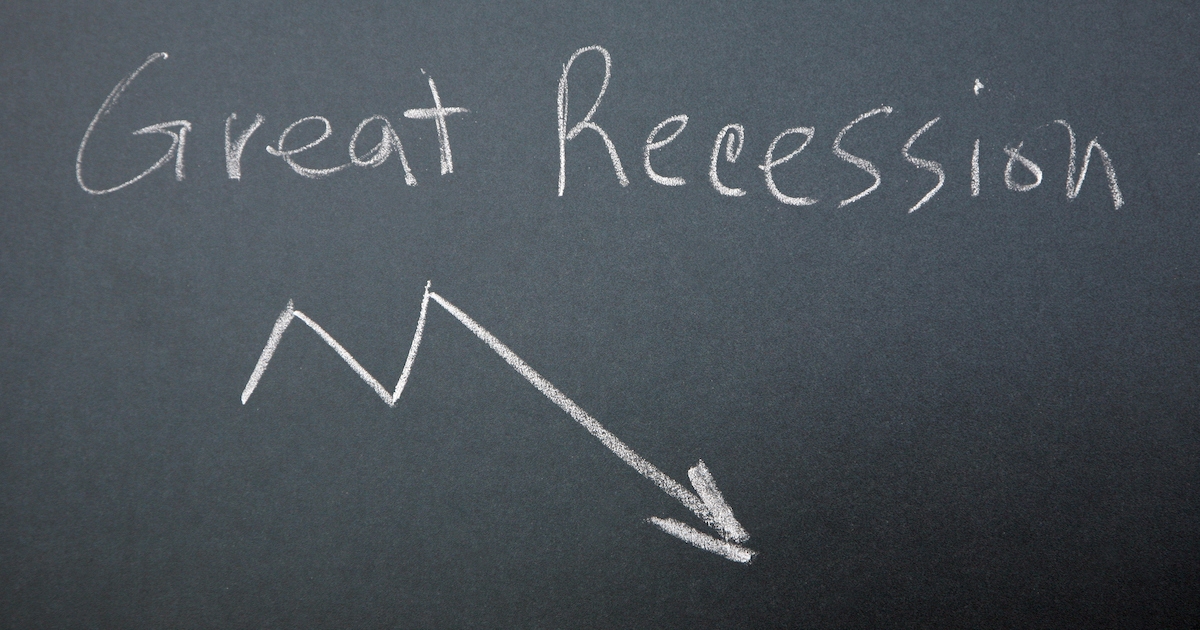 Great Recession